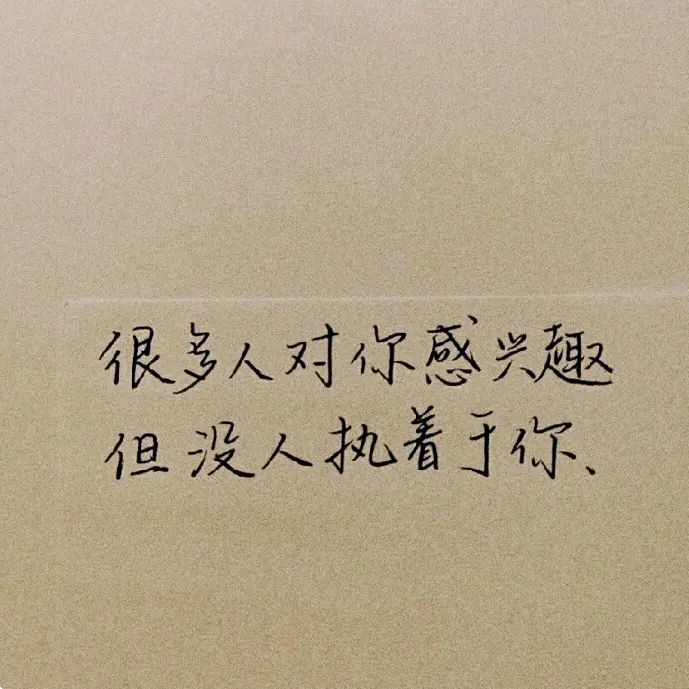 很多人对你感兴趣
但没人执着于你、